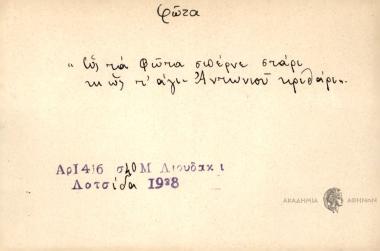 φῶτα
« Ὣς τὰ Φῶτα σπέρνε στάρι
κι ὣς τ' ἁγι- Ἀντωνιοῦ κριθάρι».
Αρ1416 σ40 Μ Λιουδακι
Λατσίδα 1938
ΑΚΑΔΗΜΙΑ ΑΘΗΝΩΝ